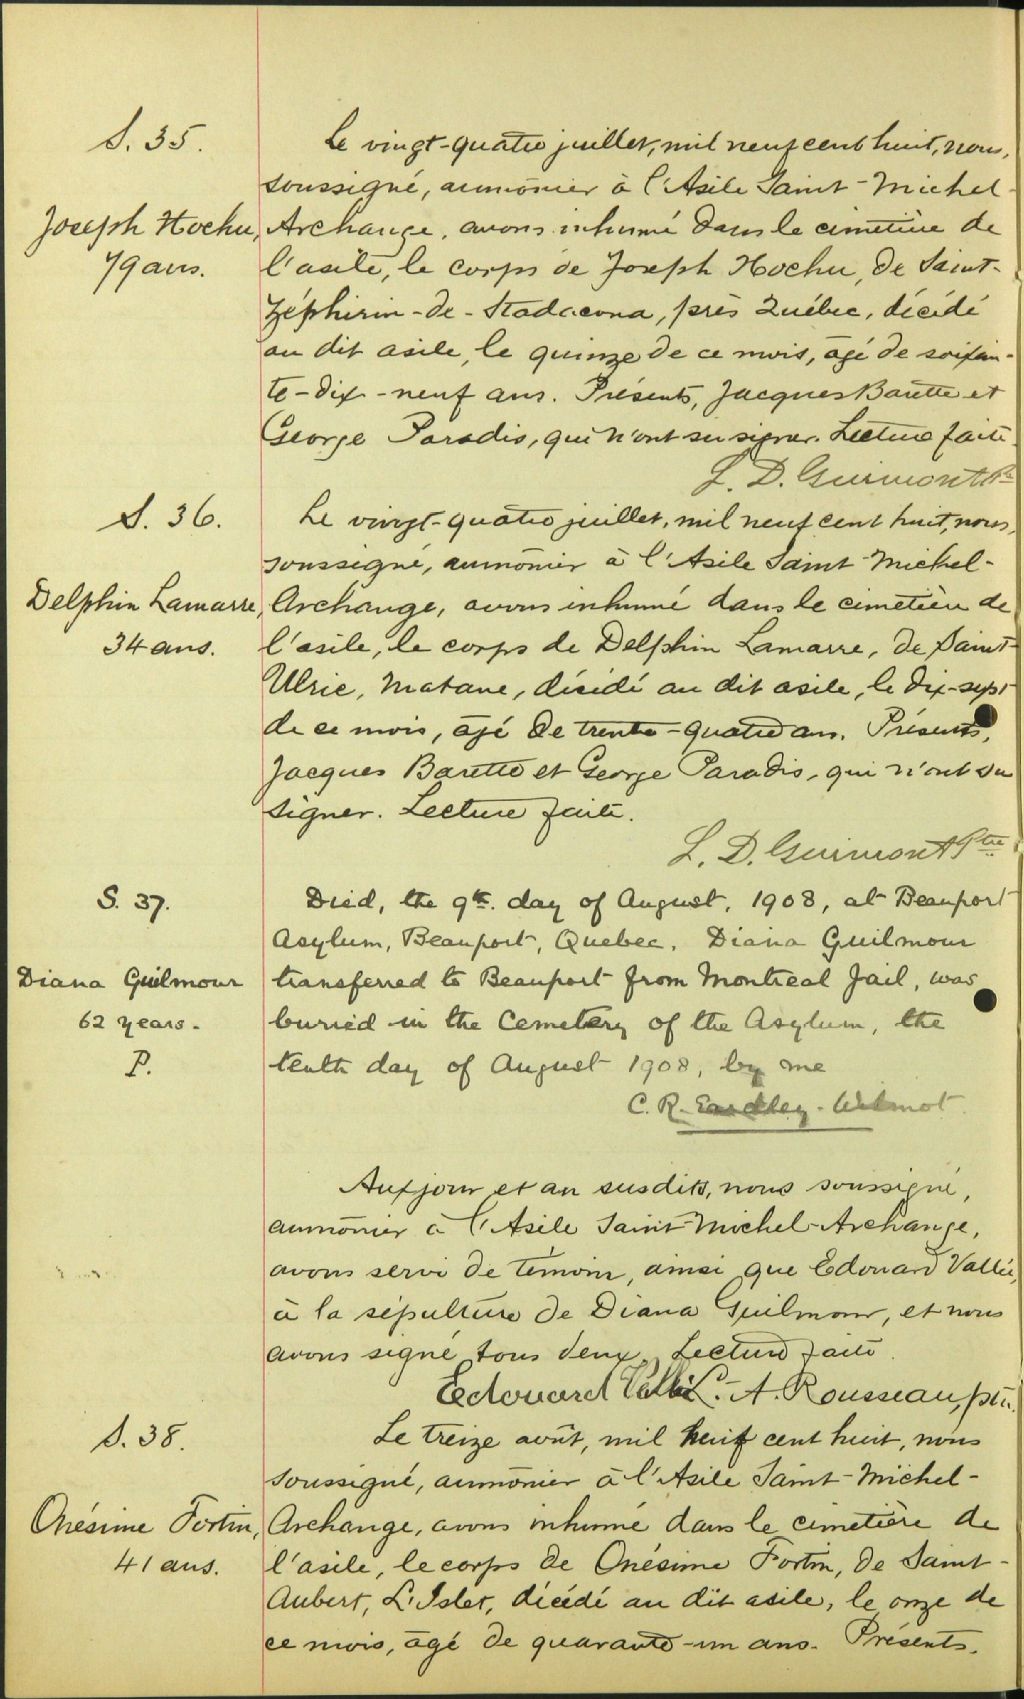 S. 35.
Joseph Hochu,
79 ans.
Le vingt-quatre juillet, mil neuf cent huit, nous,
soussigné, aumônier à l'Asile Saint-Michel-
Archange, avons inhumé dans le cimetière de
l'asile, le corps de Joseph Hochu, de Saint-
Zéphirin-de-Stadacona, près Québec, décédé
au dit asile, le quinze de ce mois, âgé de soixan-
te-dix-neuf ans. Présents, Jacques Barette et
George Paradis, qui n'ont su signer. Lecture faite.
L. D. Guimont Ptre
S. 36.
Delphin Lamarre,
34 ans.
Le vingt-quatre juillet, mil neuf cent huit, nous,
soussigné, aumônier à l'Asile Saint-Michel-
Archange, avons inhumé dans le cimetière de
l'asile, le corps de Delphin Lamarre, de Saint-
Ulric, Matane, décédé au dit asile, le dix-sept
de ce mois, âgé de trente-quatre ans. Présents,
Jacques Barette et George Paradis, qui n'ont su
signer. Lecture faite.
L. D. Guimont Ptre
S. 37.
Diana Guilmour
62 years.
P.
Died, the 9th. day of August, 1908, at Beauport
Asylum, Beauport, Quebec. Diana Guilmour
transferred to Beauport from Montreal Jail, was
buried in the Cemetery of the Asylum, the
tenth day of August 1908, by me
C. R. Eardley-Wilmot
Aux jour et an susdits, nous soussigné,
aumônier à l'Asile Saint-Michel-Archange,
avons servi de témoin, ainsi que Edouard Vallée,
à la sépulture de Diana Guilmour, et nous
avons signé tous deux. Lecture faite.
Edouard Vallée L.-A. Rousseau, ptre.
S. 38.
Onésime Fortin,
41 ans.
Le treize août, mil neuf cent huit, nous
soussigné, aumônier à l'Asile Saint-Michel-
Archange, avons inhumé dans le cimetière de
l'asile, le corps de Onésime Fortin, de Saint-
Aubert, L'Islet, décédé au dit asile, le onze de
ce mois, âgé de quarante-un ans. Présents,